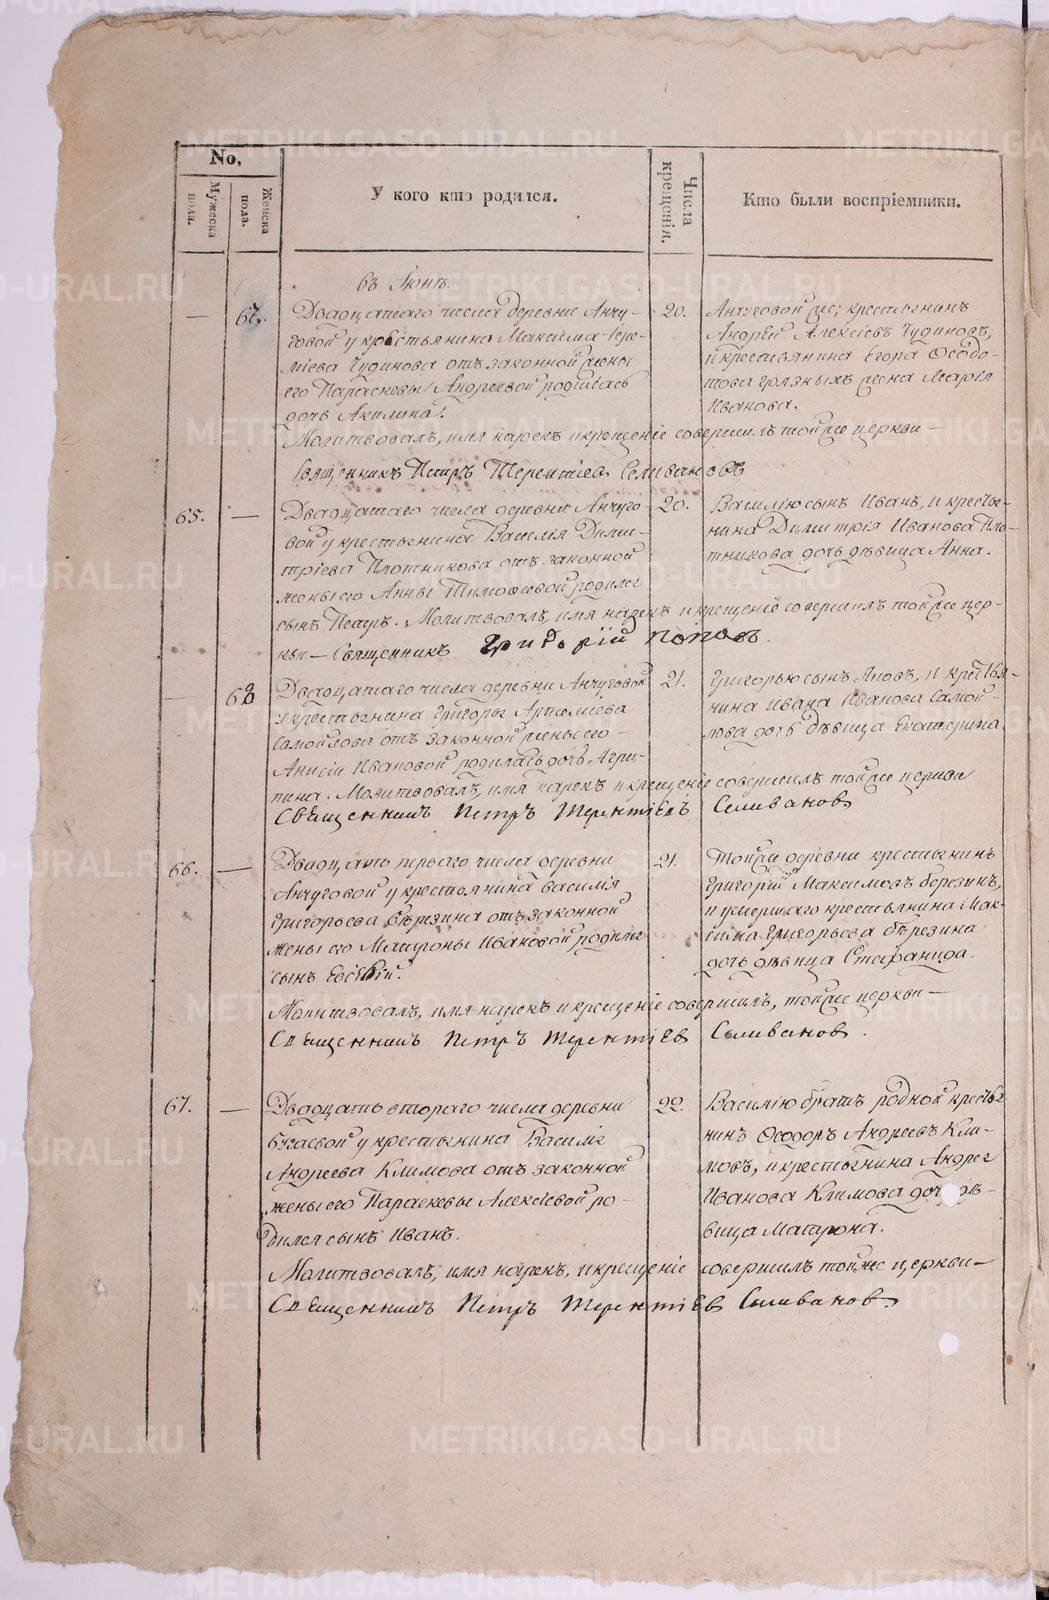 No,
Мужеска пола.
Женска пола.
У кого кто родился.
Числа крещенія.
Кто были воспріемники.
въ Іюнѣ.
— 67. Двадцатаго числа деревни Анчу- 20. Анчуговой же; крестьянинъ
говой у крестьянина Максима Іере- Андрей Алексѣевъ Чудиновъ,
міева Чудинова отъ законной жены и крестьянина Егора Ѳеодо-
его Параскевы Андреевой родилась това Грязныхъ жена Марія
дочь Акилина. Иванова.
Молитвовалъ, имя нарекъ и крещеніе совершилъ тойже церкви —
Священникъ Петръ Терентіевъ Селивановъ
65. — Двадцатаго числа деревни Анчуго- 20. Василію сынъ Иванъ, и крестья-
вой у крестьянина Василія Дими- нина Димитрія Иванова Пло-
тріева Плотникова отъ законной тникова дочь дѣвица Анна.
жены его Анны Тимофеевой родился
сынъ Петръ. Молитвовалъ, имя нарекъ и крещеніе совершилъ тойже цер-
кви — Священникъ Григорій Поповъ.
— 68 Двадцатаго числа деревни Анчуговой 21. Григорью сынъ Яковъ, и крестья-
у крестьянина Григорья Артеміева нина Ивана Иванова Самой-
Самойлова отъ законной жены его — лова дочь дѣвица Екатерина.
Анисіи Ивановой родилась дочь Агри-
пина. Молитвовалъ, имя нарекъ и крещеніе совершилъ тойже церкви
Священникъ Петръ Терентіевъ Селивановъ
66. — Двадцать перваго числа деревни 21. Тойже деревни крестьянинъ
Анчуговой у крестьянина Василія Григорій Максимовъ Березинъ,
Григорьева Березина отъ законной и умершаго крестьянина Мак-
жены его Матроны Ивановой родился сима Григорьева Березина
сынъ Евсевій. дочь дѣвица Стефанида.
Молитвовалъ, имя нарекъ и крещеніе совершилъ, тойже церкви —
Священникъ Петръ Терентіев Селивановъ.
67. — Двадцать втораго числа деревни 22. Василію братъ родной крестья-
у крестьянина Василія нинъ Ѳеодоръ Андреевъ Кли-
Андреева Климова отъ законной мовъ, и крестьянина Андрея
жены его Параскевы Алексіевой ро- Иванова Климова дочь дѣ-
дился сынъ Иванъ. вица Матрона.
Молитвовалъ, имя нарекъ, и крещеніе совершилъ тойже церкви —
Священникъ Петръ Терентіев Селивановъ
METRIKI.GASO-URAL.RU